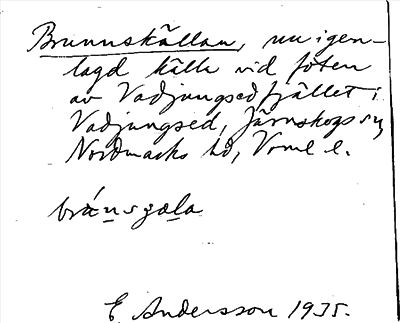 Brunnskällan, nu igen-
lagd källa vid foten
av Vadjungsedfjället i
Vadjungsed, Järnskogs sn,
Nordmarks hd, Vrml l.
bránsgala
E Andersson 1935.